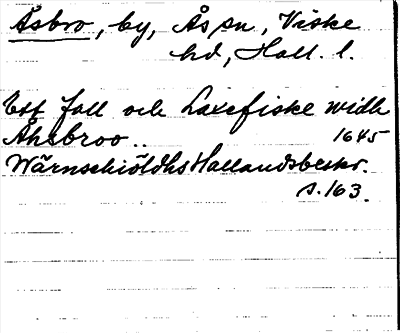 Åsbro, by, Ås sn, Viske
hd, Hall. l.
Ett fall och Laxefiske widh
Åhsbroo..
1645
Wärnschiöldhs Hallandsbeskr.
s. 163.